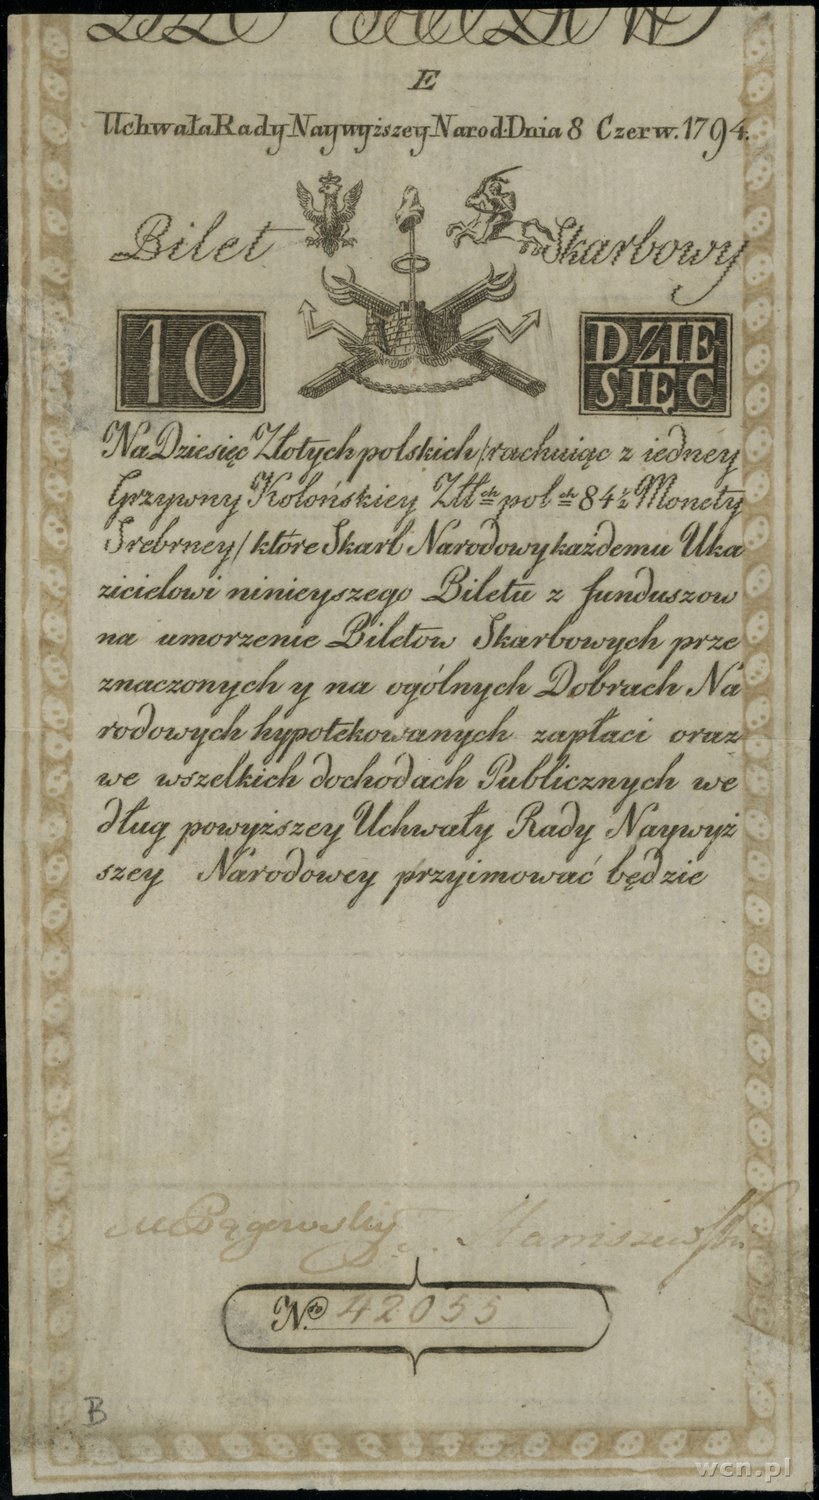 E
Uchwała Rady Naywyższey Narod. Dnia 8 Czerw. 1794.
Bilet Skarbowy
10 DZIE
SIĘC
Na Dziesięc Złotych polskich /rachuiąc z iedney
Grzywny Kolońskiey Złł.ch pol.ch 84½ Monety
Srebrney/ które Skarb Narodowy każdemu Uka
zicielowi ninieyszego Biletu z funduszow
na umorzenie Biletow Skarbowych prze
znaczonych y na ogólnych Dobrach Na
rodowych hypotekowanych zapłaci oraz
we wszelkich dochodach Publicznych we
dług powyższey Uchwały Rady Naywyż
szey Narodowey przyimować będzie
M Pągowski Staniszewski
N.ro 42055
B
wcn.pl